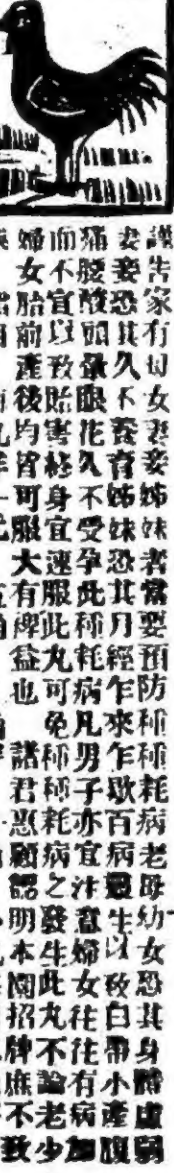 謹告家有母女妻妾姊妹者當要預防種種耗病老母幼女恐其身體虛弱
妻妾恐其久不養育姊妹恐其月經乍來乍歇百病叢生以致白帶小產腹
痛腰酸頭暈眼花久不受孕此種耗病凡男子亦宜注意婦女往往有病加
而不宜以致貽害終身宜速服此丸可免種種耗病之發生此丸不論老少
婦女胎前產後均皆可服大有裨益也 諸君惠顧認明本閣招牌庶不致